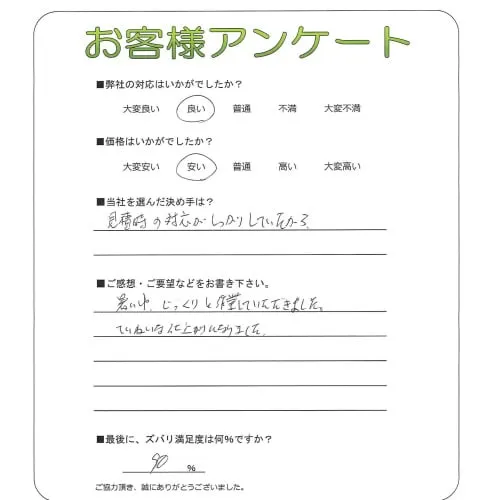 お客様アンケート
■弊社の対応はいかがでしたか？
大変良い 良い 普通 不満 大変不満
■価格はいかがでしたか？
大変安い 安い 普通 高い 大変高い
■当社を選んだ決め手は？
見積時の対応がしっかりしていたから
■ご感想・ご要望などをお書き下さい。
暑い中、じっくりと作業していただきました。
ていねいな仕上がりになりました。
■最後に、ズバリ満足度は何％ですか？
90 ％
ご協力頂き、誠にありがとうございました。